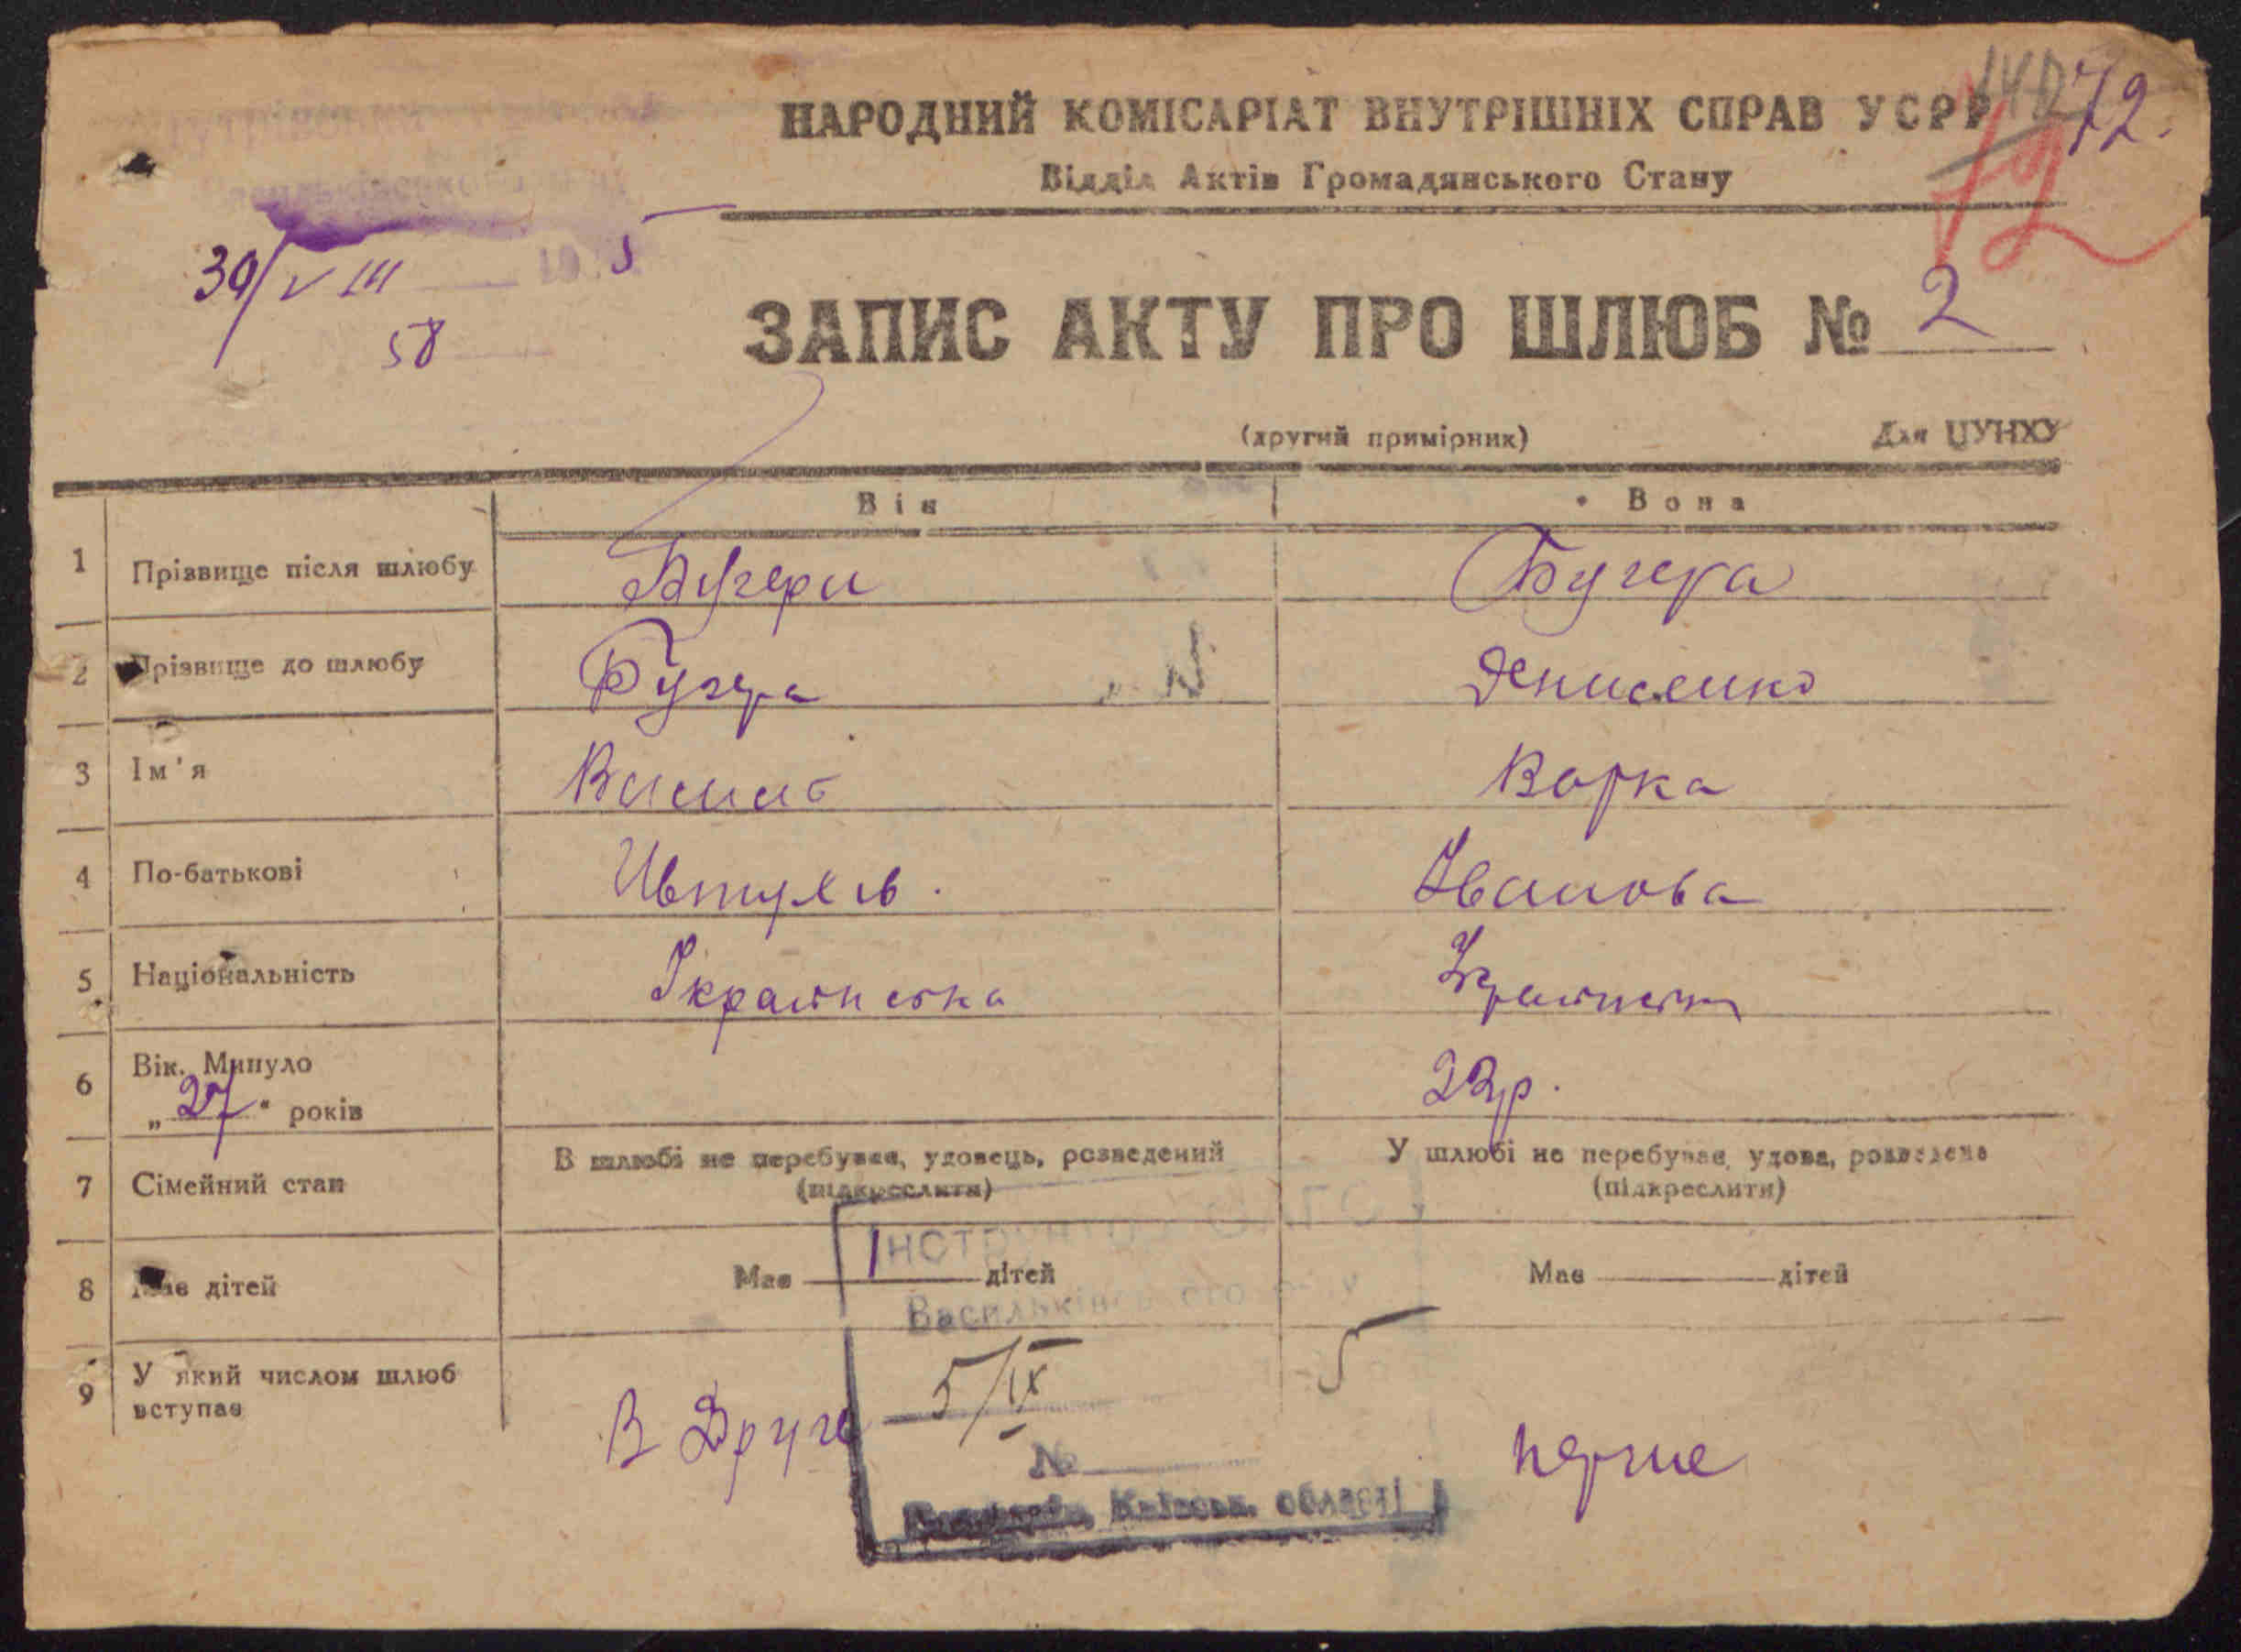 НАРОДНИЙ КОМІСАРІАТ ВНУТРІШНІХ СПРАВ УСРР
140 72.
Відділ Актів Громадянського Стану
72
30/VIII 1935
58
ЗАПИС АКТУ ПРО ШЛЮБ № 2
(другий примірник) Для ЦУНХУ
Він Вона
1 Прізвище після шлюбу Бугера Бугера
2 Прізвище до шлюбу Бугера Денисенко
3 Ім'я Василь Варка
4 По-батькові Ивтухів. Іванова
5 Національність Українська Українська
6 Вік. Минуло
„27" років 22р.
7 Сімейний стан В шлюбі не перебував, удовець, розведений У шлюбі не перебуває, удова, розведена
(підкреслити) (підкреслити)
Інструктор ЗАГС
8 Має дітей Має дітей Має дітей
Васильківського р-ну
9 У який числом шлюб
вступає В Друге перше
5/IX 5
№
Київськ. області